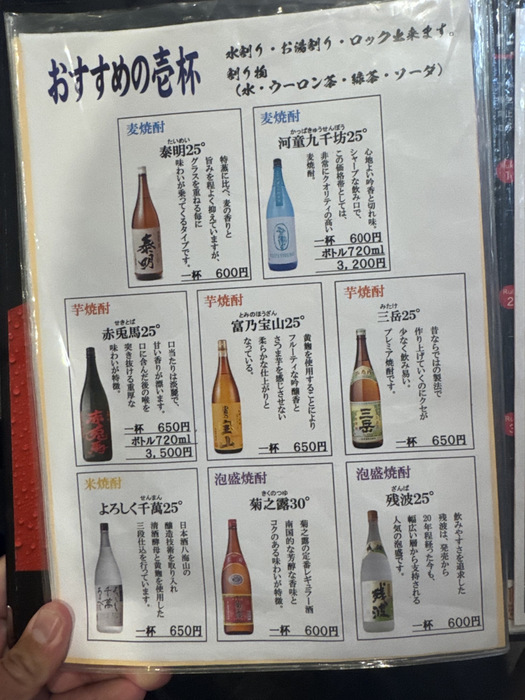 おすすめの壱杯
水割り・お湯割り・ロック出来ます。
割り物
(水・ウーロン茶・緑茶・ソーダ)
麦焼酎
たいめい
泰明25°
特蒸に比べ、麦の香りと
旨みを程よく抑えていますが、
グラスを重ねる毎に
味わいが乗ってくるタイプです。
一杯 600円
泰明
麦焼酎
かっぱきゅうせんぼう
河童九千坊25°
心地よい吟香と切れ味。
シャープな飲み口で、
この価格帯としては、
非常にクオリティの高い
麦焼酎。
一杯 600円
ボトル720ml
3,200円
芋焼酎
せきとば
赤兎馬25°
口当たりは淡麗で、
甘い香りが漂います。
口に含んだ後の喉を
突き抜ける重厚な
味わいが特徴。
一杯 650円
ボトル720ml
3,500円
赤兎馬
芋焼酎
とみのほうざん
富乃宝山25°
黄麹を使用することにより
フルーティな吟醸香と
さつま芋を感じさせない
柔らかな仕上がりと
なっている。
一杯 650円
芋焼酎
みたけ
三岳25°
昔ならではの製法で
作り上げていくのにクセが
少なく飲み易い。
プレミア焼酎です。
一杯 650円
三岳
米焼酎
せんまん
よろしく千萬25°
日本酒八海山の
醸造技術を取り入れ
清酒酵母と黄麹を使用した
三段仕込を行っています。
一杯 650円
泡盛焼酎
きくのつゆ
菊之露30°
菊之露の定番レギュラー酒
南国的な芳醇な香味と
コクのある味わいが特徴。
一杯 600円
泡盛焼酎
ざんぱ
残波25°
飲みやすさを追求した
残波は、発売から
20年程経った今も、
幅広い層から支持される
人気の泡盛です。
一杯 600円
残波